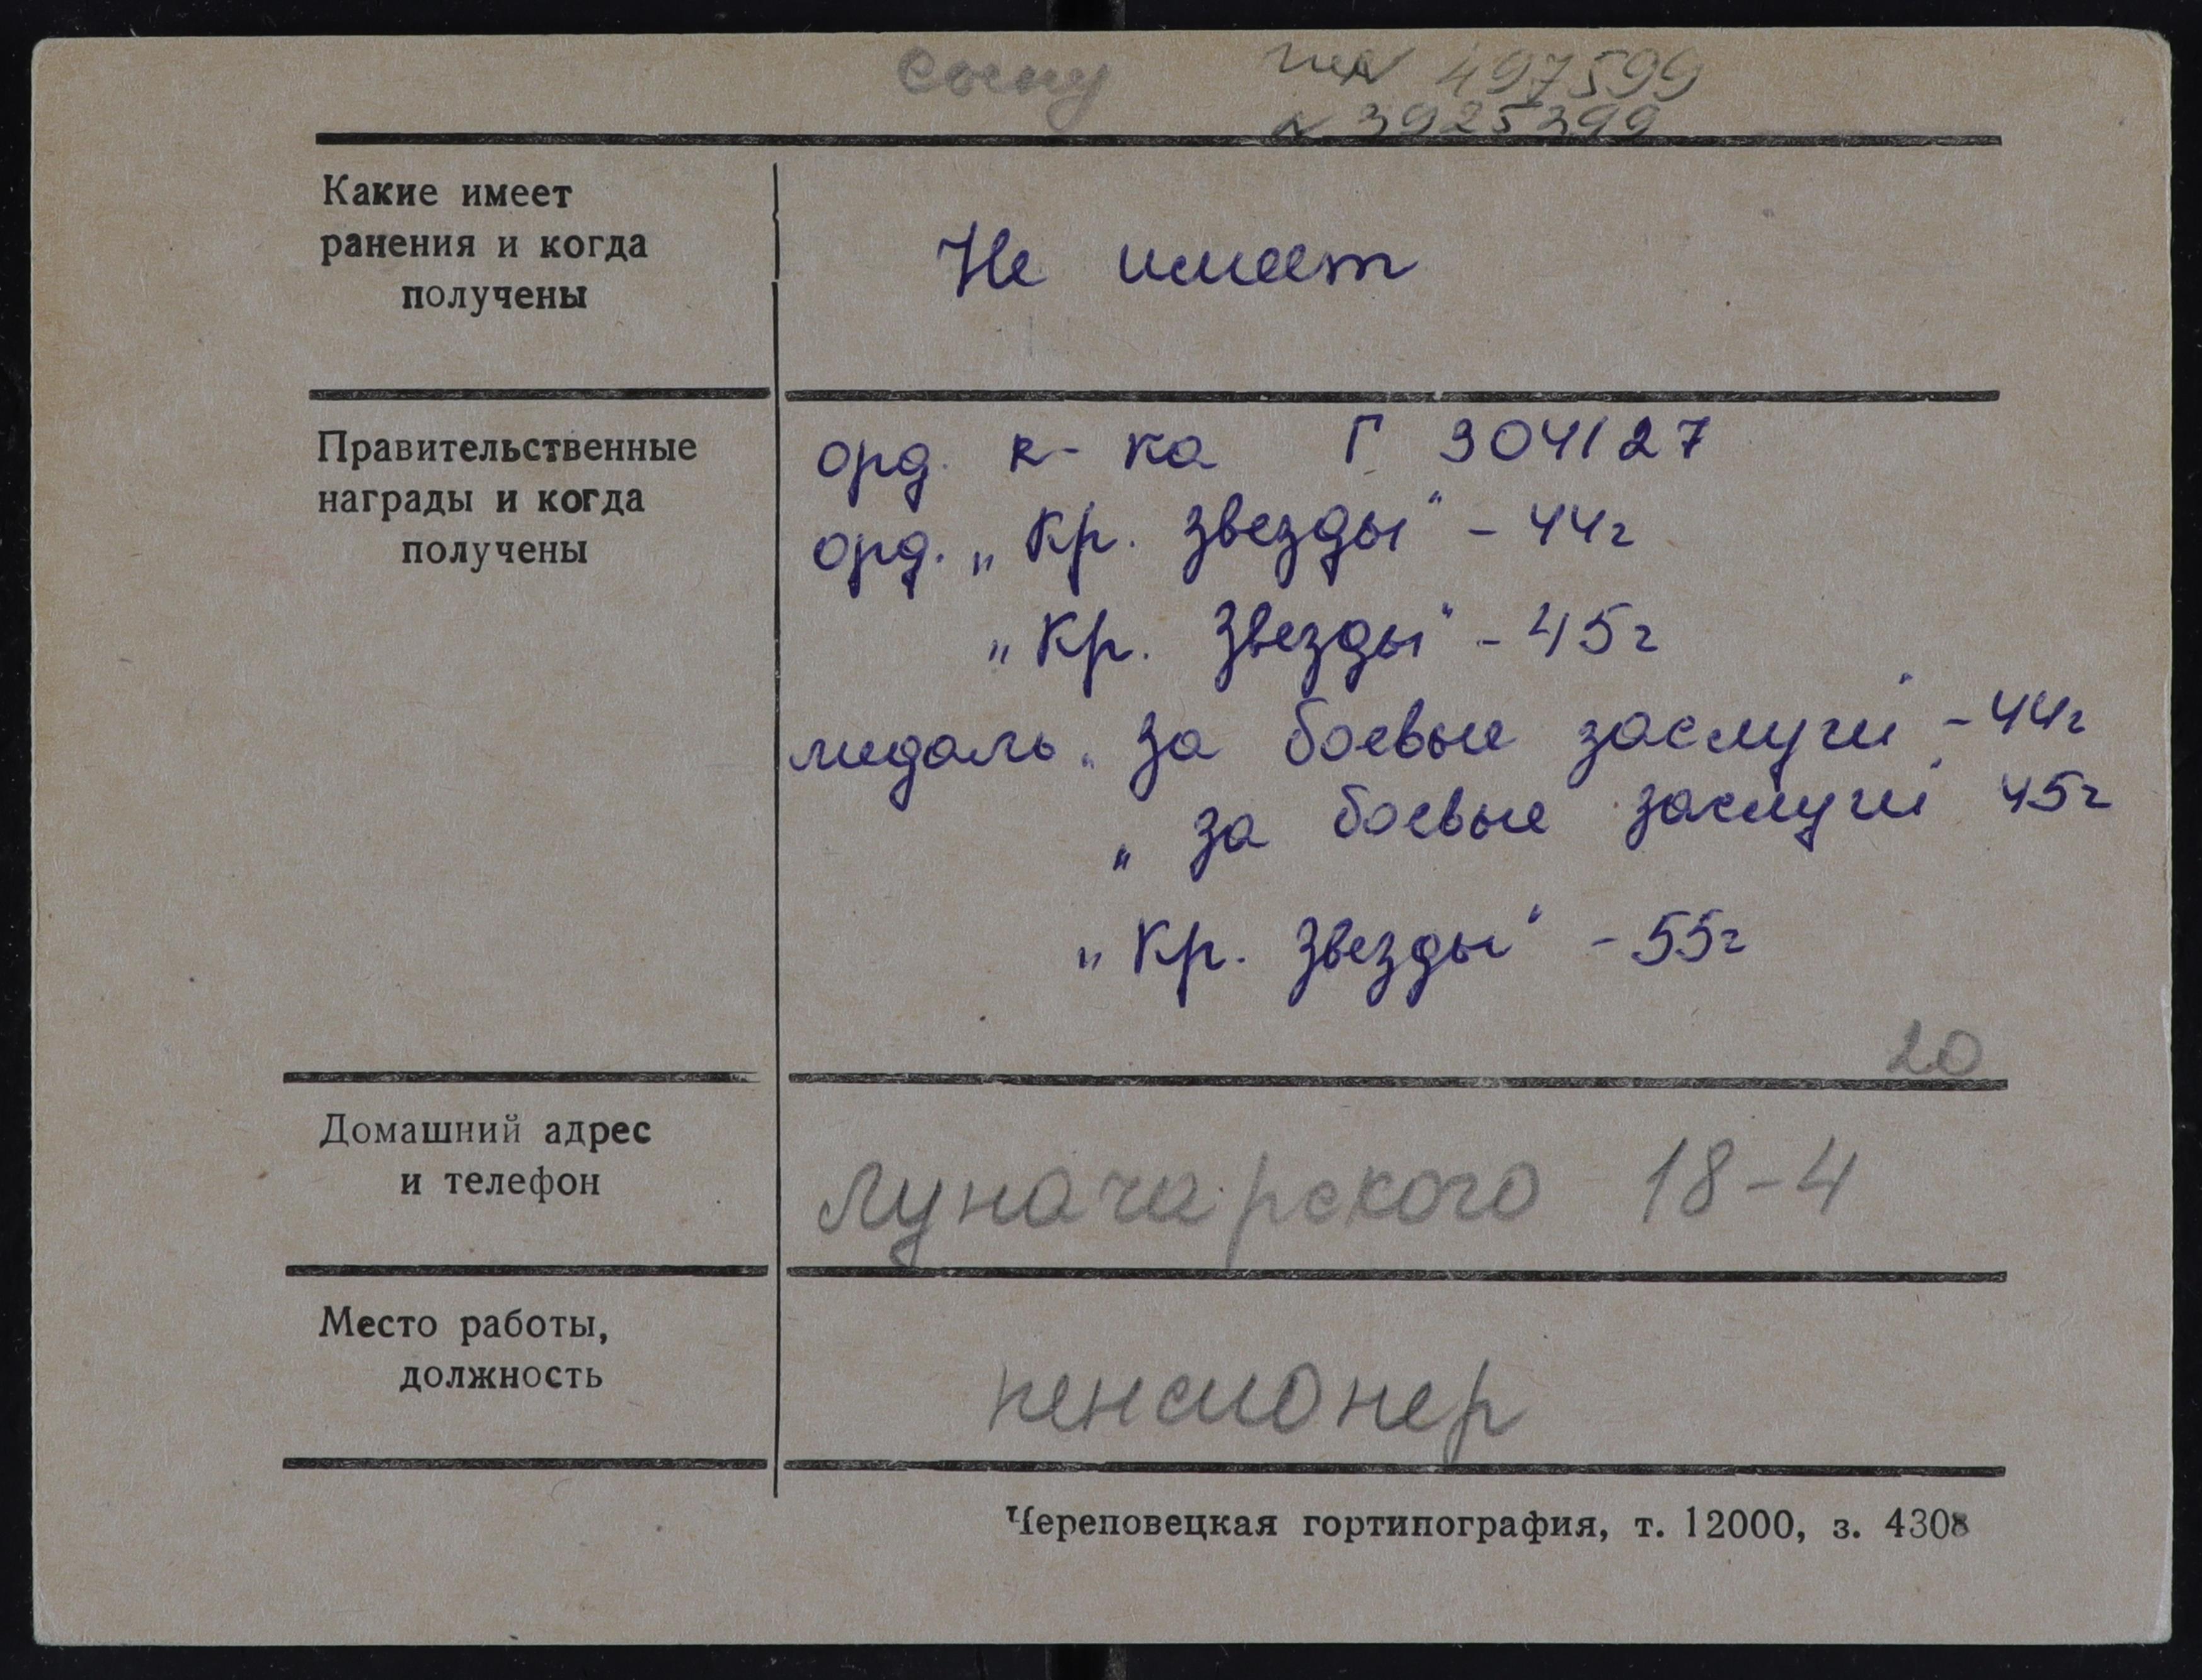 сыну
№ 497599
№ 3925399
Какие имеет
ранения и когда
получены
Не имеет
Правительственные
награды и когда
получены
орд. к-ка Г 304127
орд. „Кр. Звезды" - 44г
„Кр. Звезды" - 45г
медаль „За боевые заслуги" - 44г
„За боевые заслуги" 45г
„Кр. Звезды" - 55г
20
Домашний адрес
и телефон
Луначарского 18-4
Место работы,
должность
пенсионер
Череповецкая гортипография, т. 12000, з. 4308